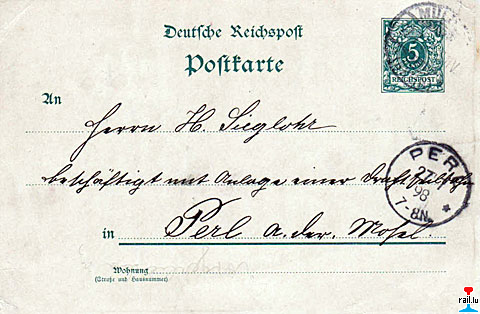 Deutsche Reichspost
Postkarte
5
REICHSPOST
An
Herrn H. Sieglohr
beschäftigt mit Anlage einer
PERL
27
98
7-8N.
in Perl a. der. Mosel.
Wohnung
(Straße und Hausnummer)
rail.lu